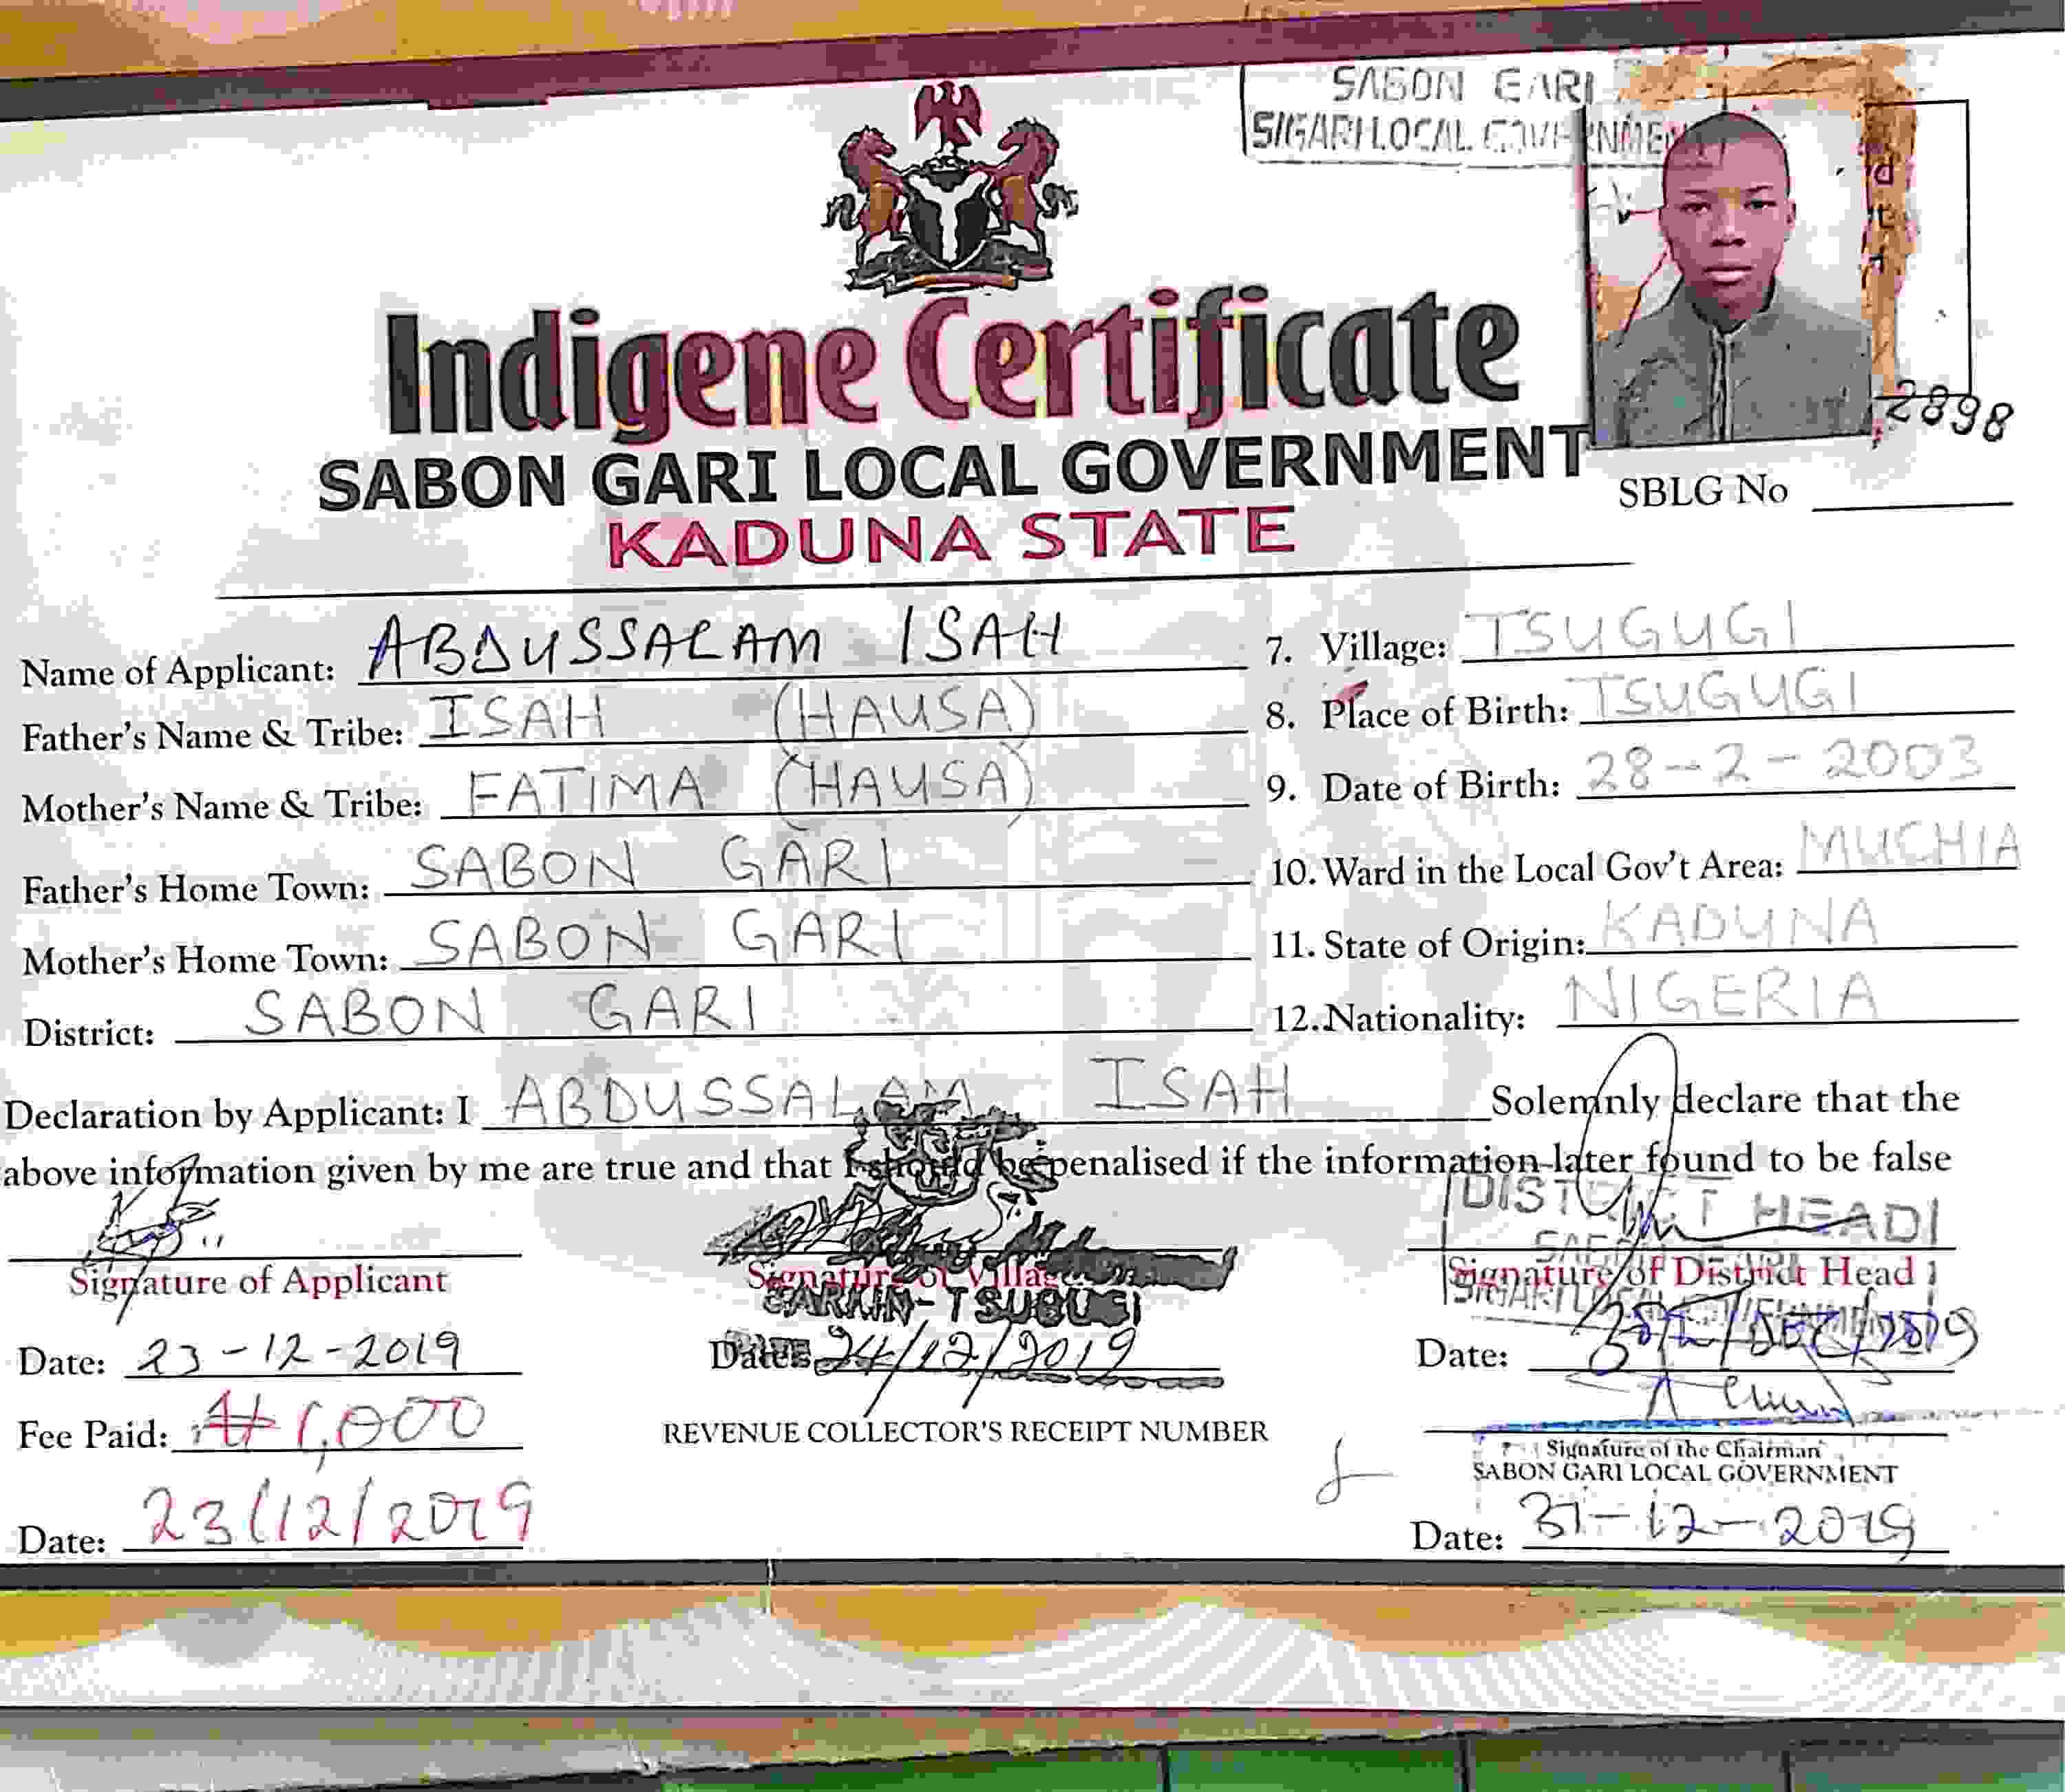 SABON GARI
S/GARI LOCAL GOVERNMENT
Indigene Certificate
2898
SABON GARI LOCAL GOVERNMENT
SBLG No
KADUNA STATE
Name of Applicant: ABDUSSALAM ISAH
7. Village: TSUGUGI
Father's Name & Tribe: ISAH (HAUSA)
8. Place of Birth: TSUGUGI
Mother's Name & Tribe: FATIMA (HAUSA)
9. Date of Birth: 28-2-2003
Father's Home Town: SABON GARI
10. Ward in the Local Gov't Area: MUCHIA
Mother's Home Town: SABON GARI
11. State of Origin: KADUNA
District: SABON GARI
12. Nationality: NIGERIA
Declaration by Applicant: I ABDUSSALAM ISAH Solemnly declare that the
above information given by me are true and that I should be penalised if the information later found to be false
DISTRICT HEAD
Signature of Applicant
Signature of Village
Signature of District Head
SARKIN-TSUGUGI
Date: 23-12-2019
Date: 24/12/2019
Date:
Fee Paid: ₦1,000
REVENUE COLLECTOR'S RECEIPT NUMBER
Signature of the Chairman
SABON GARI LOCAL GOVERNMENT
Date: 23/12/2019
Date: 31-12-2019